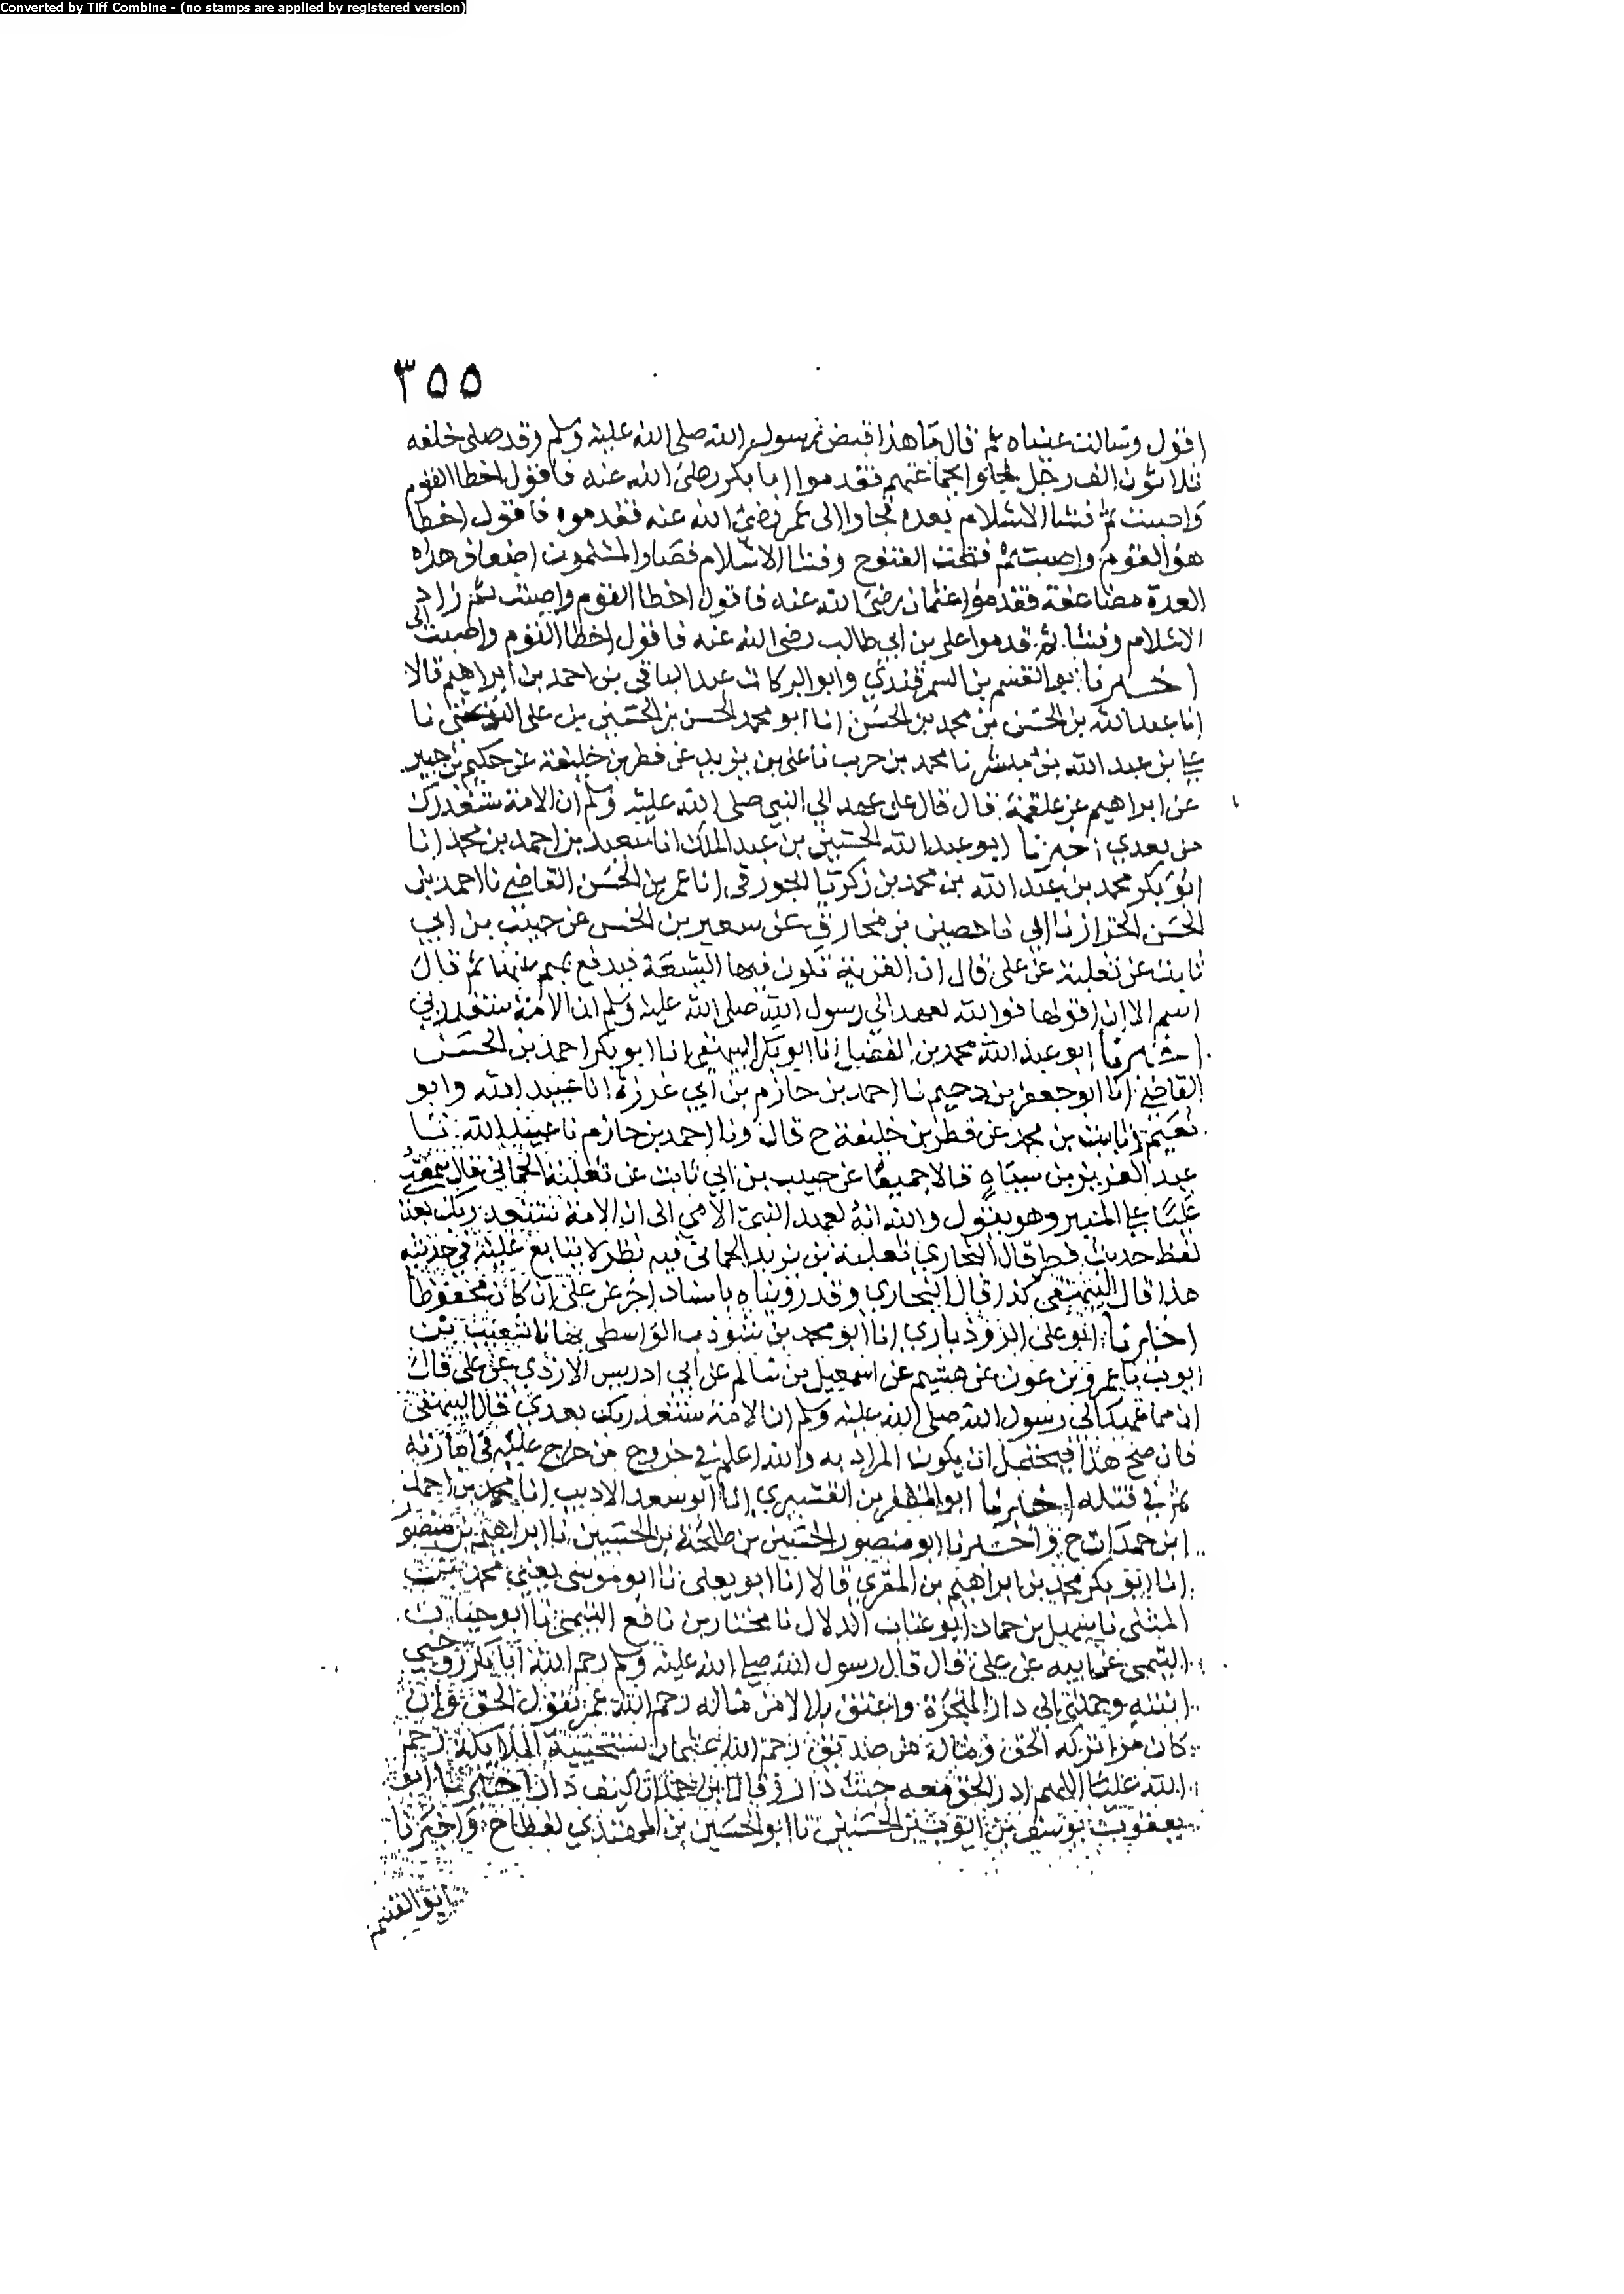 Converted by Tiff Combine - (no stamps are applied by registered version)
٣٥٥
اقول وسالت عيناه ثم قال ما هذا قبض رسول الله صلى الله عليه وسلم وقد صلى خلفه
ثلاثون الف رجل فجاوا بجماعتهم فقدموا ابا بكر رضي الله عنه فاقول اخطا القوم
واصبت ثم فشا الاسلام بعده فجاوا الى عمر رضي الله عنه فقدموه فاقول اخطا
هؤ القوم واصبت ثم فتحت الفتوح وفشا الاسلام فصار المسلمون اضعاف هذه
العدة مضاعفة فقدموا عثمان رضي الله عنه فاقول اخطا القوم واصبت ثم زاد
الاسلام وفشا ثم قدموا علي بن ابي طالب رضي الله عنه فاقول اخطا القوم واصبت
اخبرنا ابو القسم بن السمرقندي وابو البركات عبد الباقي بن احمد بن ابراهيم قالا
انا عبد الله بن الحسن بن محمد بن الحسن انا ابو محمد الحسن بن الحسين بن علي نا
علي بن عبد الله بن مبشر نا محمد بن حرب نا علي بن يزيد عن فطر بن خليفة عن حكيم بن جبير
عن ابراهيم عن علقمة قال قال علي عهد الي النبي صلى الله عليه وسلم ان الامة ستغدر بك
من بعدي اخبرنا ابو عبد الله الحسين بن عبد الملك انا سعيد بن احمد بن محمد انا
ابو بكر محمد بن عبد الله بن محمد بن زكريا الجوزقي انا عمر بن الحسن القاضي نا احمد بن
الحسن الخزاز نا ابي نا حصين بن مخارق عن سعير بن الخمس عن حبيب بن ابي
ثابت عن ثعلبة عن علي قال ان القرية تكون فيها الشيعة فيدفع بهم عنها ثم قال
الا ان اقولها فوالله لعهد الي رسول الله صلى الله عليه وسلم ان الامة ستغدر بي
اخبرنا ابو عبد الله محمد بن الفضل انا ابو بكر البيهقي انا ابو بكر احمد بن الحسن
القاضي انا ابو جعفر بن دحيم نا احمد بن حازم بن ابي غرزة انا عبيد الله وابو
نعيم بن محمد عن فطر بن خليفة ح قال ونا احمد بن حازم نا عبيد الله نا
عبد العزيز بن سياه قالا جميعا عن حبيب بن ابي ثابت عن ثعلبة الحماني قال سمعت
عليا على المنبر وهو يقول والله انه لعهد النبي الامي الى ان الامة ستغدر بك بعدي
لفظ حديث فطر قال البخاري ثعلبة بن يزيد الحماني فيه نظر لا يتابع عليه في حديثه
هذا قال البيهقي كذا قال البخاري وقد رويناه باسناد اخر عن علي ان كان محفوظا
اخبرنا ابو علي الروذباري انا ابو محمد بن شوذب الواسطي بها نا شعيب بن
ايوب نا عمرو بن عون عن هشيم عن اسمعيل بن سالم عن ابي ادريس الازدي عن علي قال
ان مما عهد الي رسول الله صلى الله عليه وسلم ان الامة ستغدر بك بعدي قال البيهقي
فان صح هذا فيحتمل ان يكون المراد به والله اعلم في خروج من خرج عليه في امارته
ثم في قتله اخبرنا ابو المظفر بن القشيري انا ابو سعد الاديب انا محمد بن احمد
ابن حمدان ح واخبرنا ابو منصور الحسين بن طلحة بن الحسين نا ابراهيم بن منصور
انا ابو بكر محمد بن ابراهيم بن المقري قالا انا ابو يعلى نا ابو موسى يعني محمد بن
المثنى نا سهيل بن حماد ابو عتاب الدلال نا مختار بن نافع التيمي نا ابو حيان
التيمي عن ابيه عن علي قال قال رسول الله صلى الله عليه وسلم رحم الله ابا بكر زوجني
ابنته وحملني الى دار الهجرة واعتق بلالا من ماله رحم الله عمر يقول الحق وان
كان مرا تركه الحق وماله من صديق رحم الله عثمان تستحييه الملايكة رحم
الله عليا اللهم ادر الحق معه حيث دار وقال ابن حمدان كيف دار اخبرنا ابو
يعقوب يوسف بن ايوب بن الحسين نا ابو الحسين بن المهتدي لفظا ح واخبرنا
ابو القسم